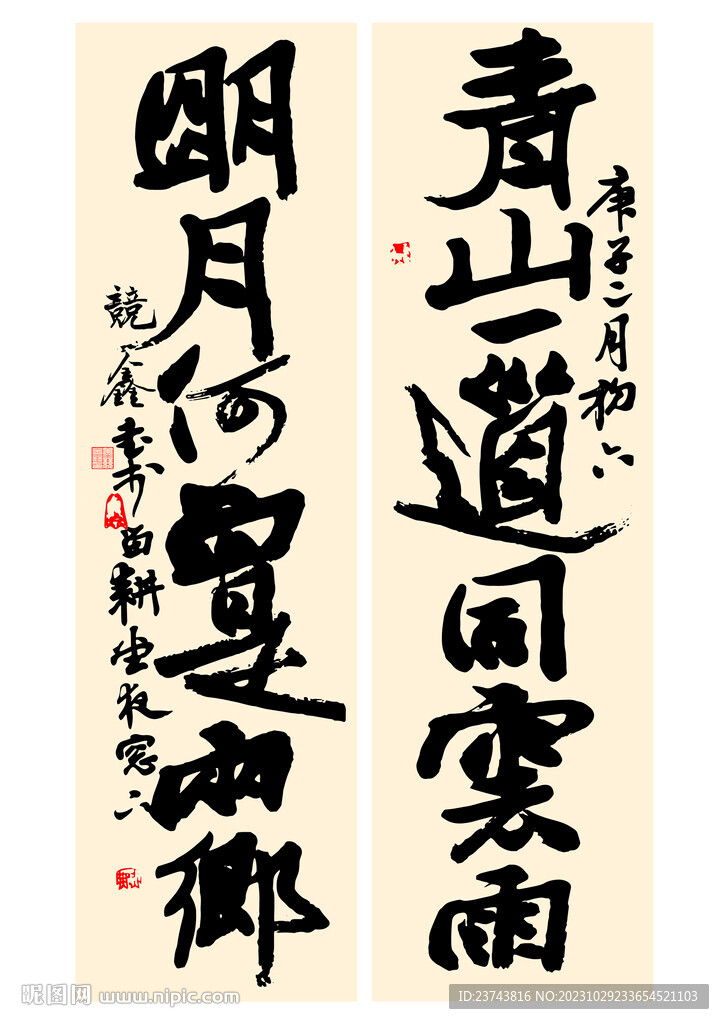 庚子二月初六
青山一道同雲雨
明月何曾是兩鄉
競鑫書於留耕堂夜窓下
昵图网 www.nipic.com
ID:23743816 NO:20231029233654521103